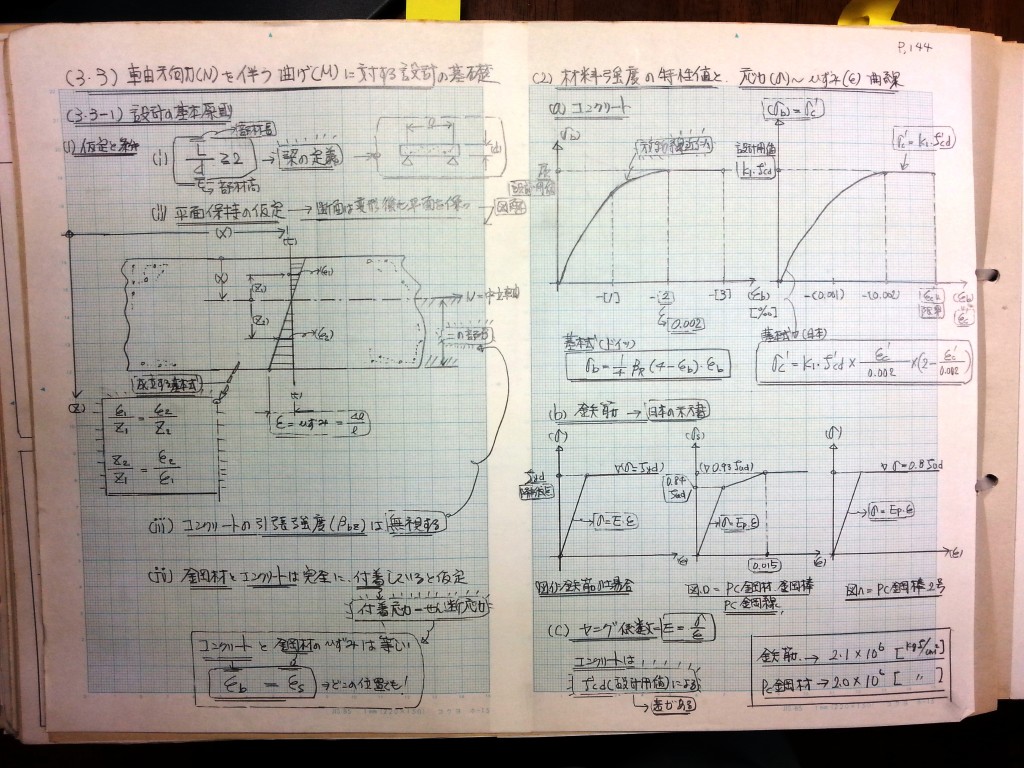 P,144
(3・3) 軸方向力(N)を伴う曲げ(M)に対する設計の基礎
(3・3-1) 設計の基本原則
(i) 仮定と条件
(i) L/d ≧ 2 → 梁の定義
部材長
部材高
(ii) 平面保持の仮定 → 断面は変形後も平面を保つ
(X)
(Z1)
(Z2)
(ε1)
(ε2)
N=中立軸
(Z)
成立する基本式
ε1/Z1 = ε2/Z2
Z2/Z1 = ε2/ε1
ε=ひずみ=Δl/l
(iii) コンクリートの引張強度(βbz)は無視する
(iv) 鋼材とコンクリートは完全に、付着していると仮定
付着応力-せん断応力
コンクリートと鋼材のひずみは等しい
εb = εs → どこの位置でも!
(2) 材料強度の特性値と、応力(σ)~ひずみ(ε)曲線
(a) コンクリート
(σb)
設計用値
k1・f'cd
(σb)=σc'
σc'=k1・f'cd
-[1]
-[2]
-[3]
(εb)
[‰]
0.002
-(0.001)
-(0.002)
(εb)
基本式(ドイツ)
σb=1/4 βR(4-εb)・εb
基本式(日本)
σc'=k1・f'cd×εc'/0.002×(2-εc'/0.002)
(b) 鉄筋 → 日本の示方書
(σ)
(σs)
(σ)
fyd
(▽σ=fyd)
σ=E・ε
(▽0.93fud)
0.84fud
σ=Ep・ε
0.015
▽σ=0.8fud
σ=Ep・ε
(ε)
(ε)
(ε)
図(イ)鉄筋の場合
図ロ=PC鋼材 鋼棒
PC鋼線
図ハ=PC鋼棒2号
(C) ヤング係数-E=σ/ε
コンクリートは
f'cd(設計用値)による
差がある
鉄筋.→2.1×10⁶[kgf/cm²]
PC鋼材→2.0×10⁶[〃]